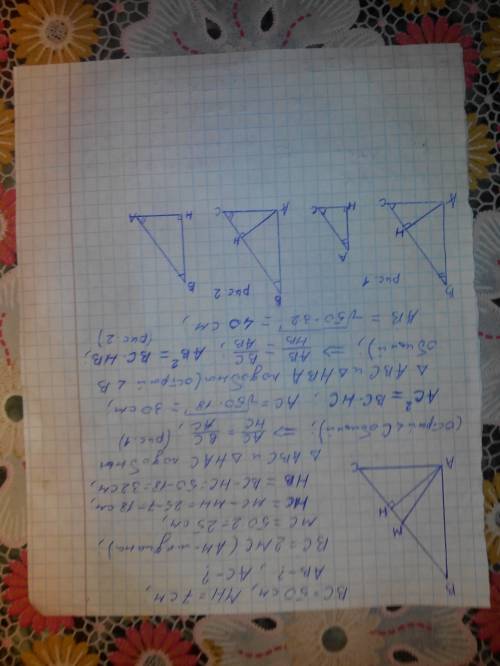 BC=50 см, MH=7 см,
AB-?, AC-?
BC=2MC (AM-медиана),
MC=50:2=25 см,
HC=MC-MH=25-7=18 см,
HB=BC-HC=50-18=32 см,
△ABC и △HAC подобны
(острый ∠C общий), ⇒ AC/HC = BC/AC, (рис. 1)
AC²=BC·HC, AC=√50·18=30 см,
△ABC и △HBA подобны (острый ∠B
общий), ⇒ AB/HB = BC/AB, AB²=BC·HB, (рис. 2)
AB=√50·32=40 см,
B
M
H
A
C
рис. 1
B
H
A
C
A
H
C
рис. 2
B
H
A
C
B
H
A